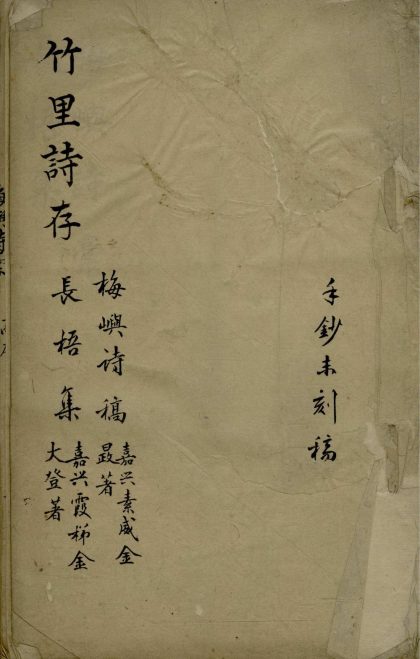 手鈔未刻稿
梅嶼诗稿
嘉兴素威金
著
長梧集
嘉兴霞梯金
大登著
竹里詩存